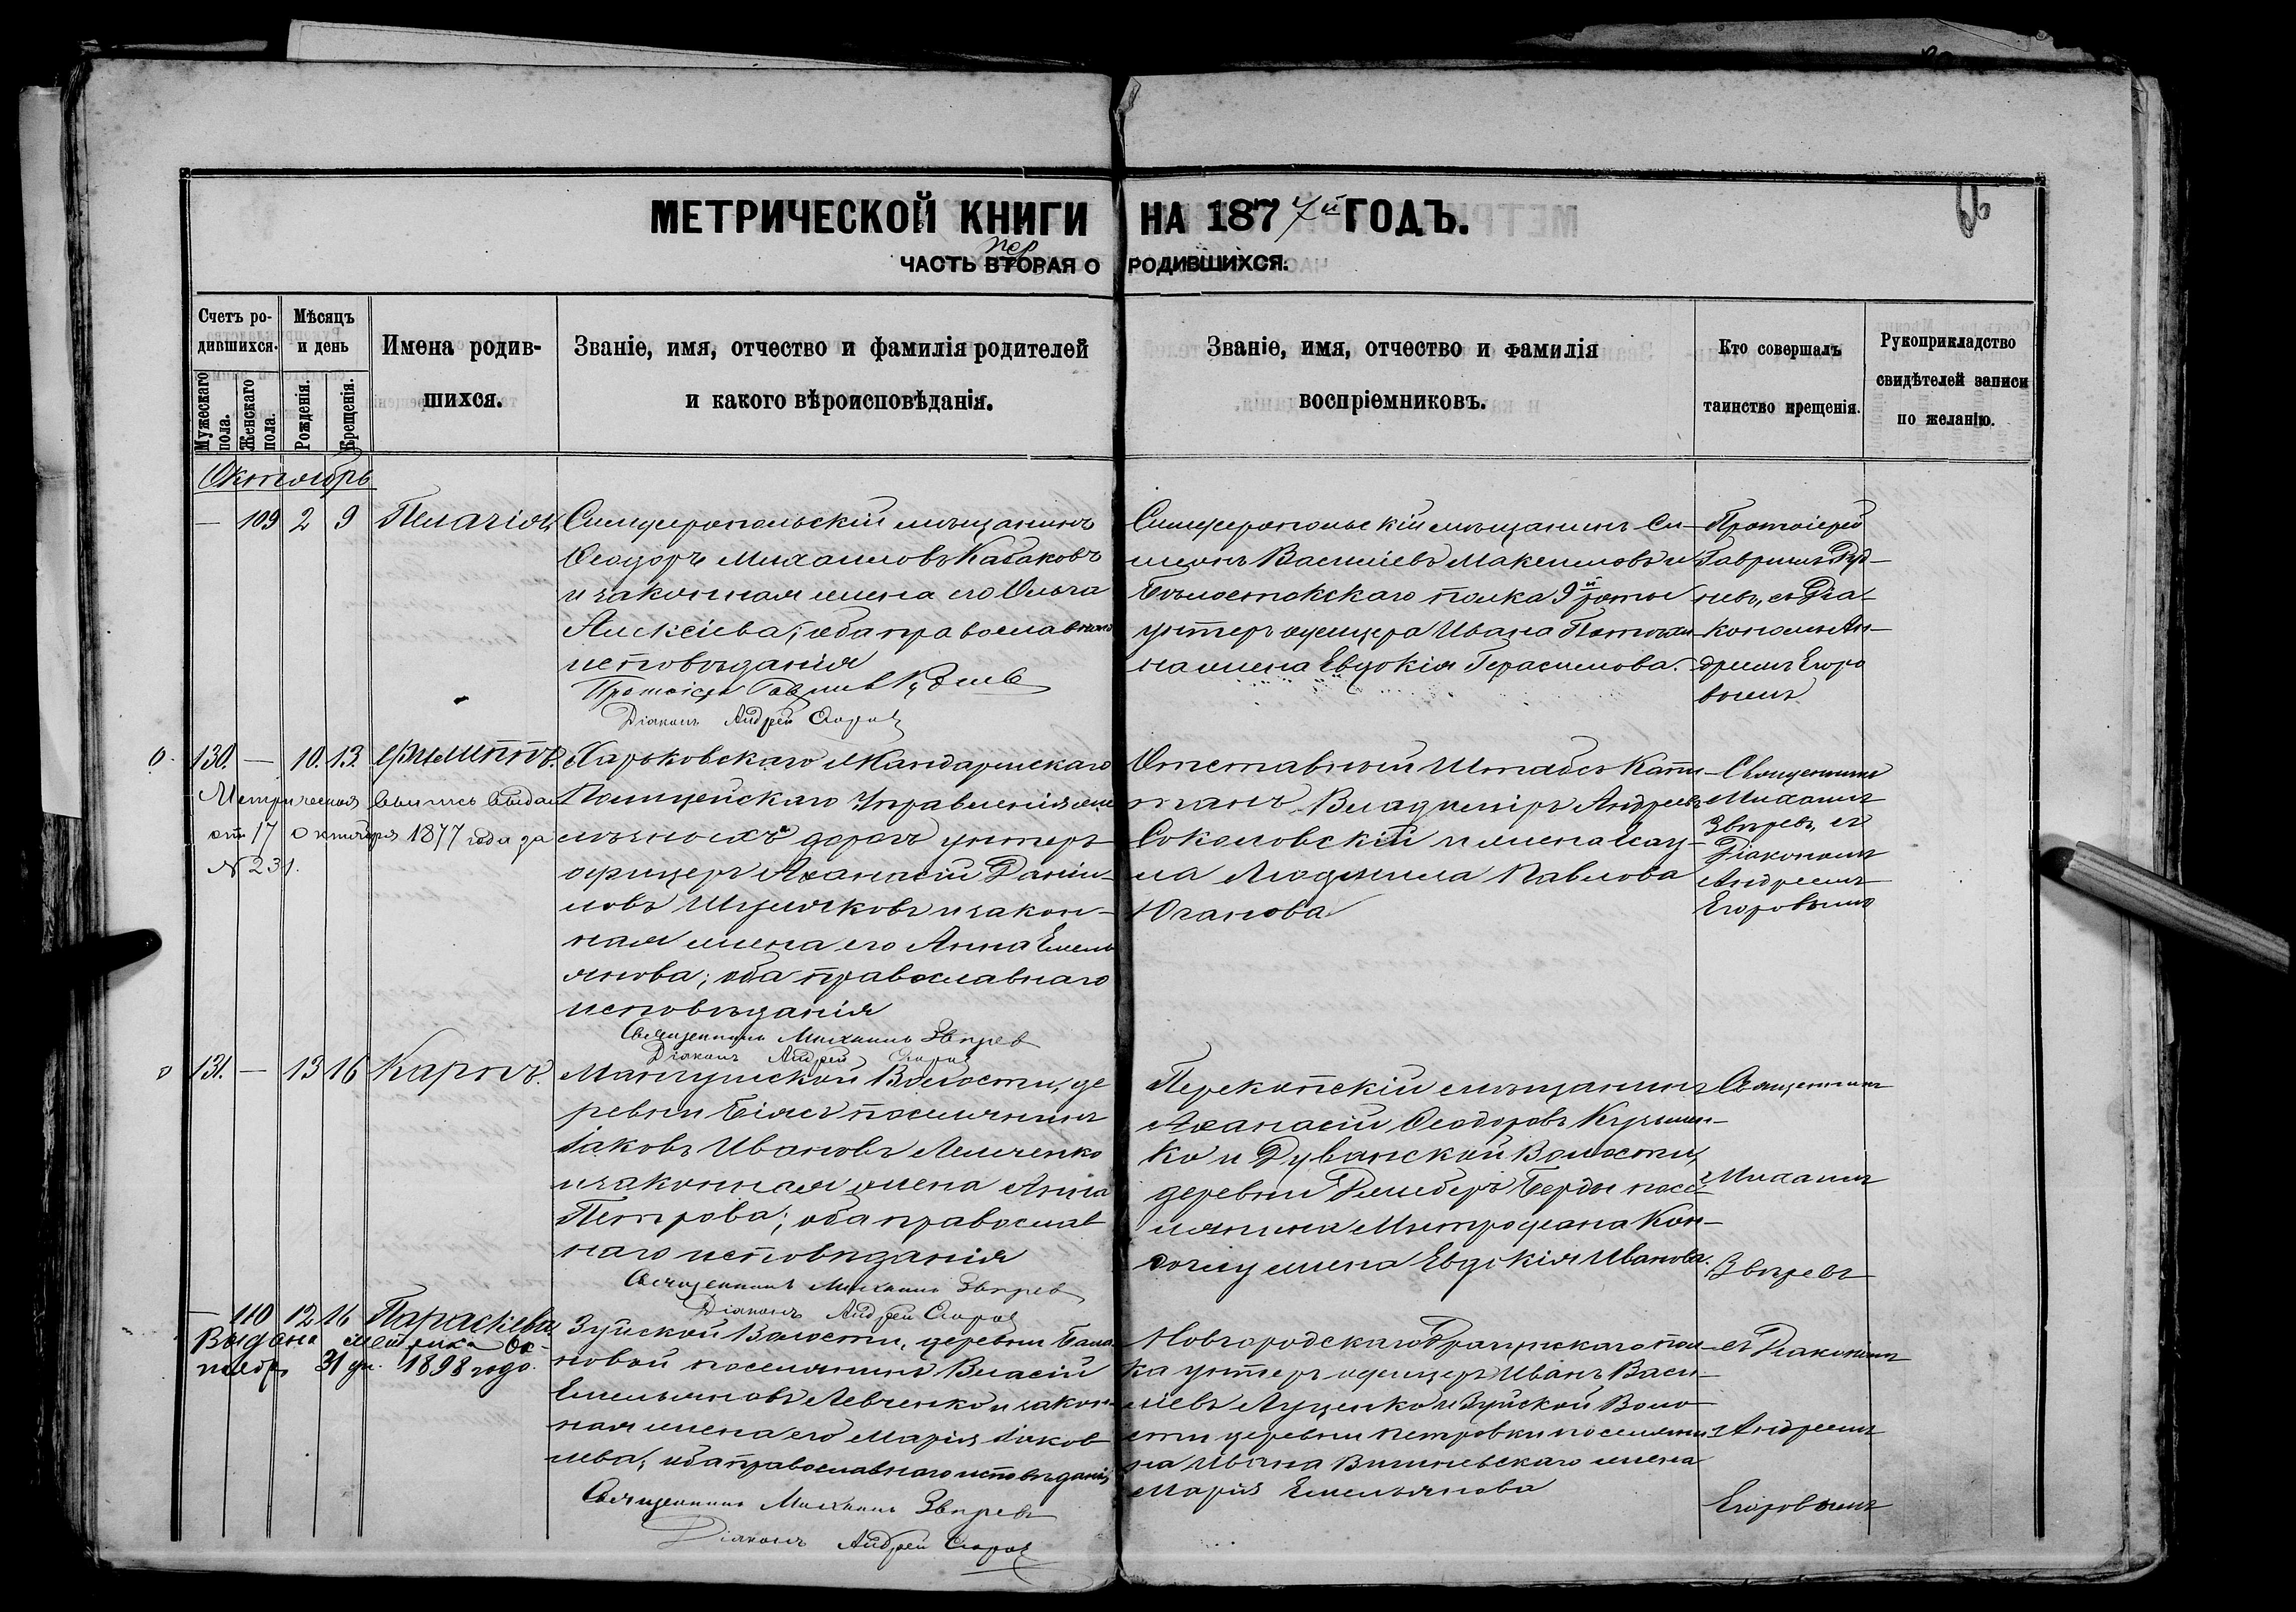 МЕТРИЧЕСКОЙ КНИГИ НА 1877й ГОДЪ.
пер
ЧАСТЬ ВТОРАЯ О РОДИВШИХСЯ.
Счетъ ро-
дившихся.
Мужескаго пола.
Женскаго пола.
Мѣсяцъ
и день
Рожденія.
Крещенія.
Имена родив-
шихся.
Званіе, имя, отчество и фамилія родителей
и какого вѣроисповѣданія.
Званіе, имя, отчество и фамилія
воспріемниковъ.
Кто совершалъ
таинство крещенія.
Рукоприкладство
свидѣтелей записи
по желанію.
Октябрь
— 109 2 9 Пелагія
Симферопольскій мѣщанинъ
Ѳеодоръ Михаиловъ Кабаковъ
и законная жена его Ольга
Алексіева; оба православнаго
исповѣданія
Протоіерей Гавріилъ
Діаконъ Андрей Егоровъ
Симферопольскій мѣщанинъ Си-
меонъ Василіевъ Максимовъ и
Бѣлостокскаго полка 9й роты
унтеръ офицера Ивана
жена Евдокія Герасимова.
Протоіерей
Гавріилъ
съ Діа-
кономъ Ан-
дреемъ Егоро
вымъ
130. — 10. 13. Филиппъ.
Метрическая выпись выдана
отъ 17 октября 1877 года за
№ 231.
Харьковскаго Жандармскаго
Полицейскаго Управленія же
лѣзныхъ дорогъ унтеръ-
офицеръ Аѳанасій Даніи-
ловъ и закон-
ная жена его Анна Емель
янова; оба православнаго
исповѣданія
Священникъ Михаилъ Звѣревъ
Діаконъ Андрей Егоровъ
Отставной Штабсъ Капи
танъ Владиміръ Андреевъ
Соколовскій и жена
Людмила Павлова
Юганова
Священникъ
Михаилъ
Звѣревъ, съ
Діакономъ
Андреемъ
Егоровымъ
131. — 13 16 Карпъ.
Мангушской Волости, де
ревни Біясъ поселянинъ
Іаковъ Ивановъ Лемченко
и законная жена Анна
Петрова; оба православ
наго исповѣданія
Священникъ Михаилъ Звѣревъ
Діаконъ Андрей Егоровъ
Перекопскій мѣщанинъ
Аѳанасій Ѳеодоровъ
ко и Дуванской Волости,
деревни посе-
лянина Митрофана
жена Евдокія Иванова.
Священникъ
Михаилъ
Звѣревъ
— 110 12 16 Параскева
Выдана метрика Ок-
тября 31 дн. 1898 года.
Зуйской Волости, деревни
новой поселянинъ Власій
Емельяновъ Левченко и закон-
ная жена его Марія Іаков
лева; оба православнаго исповѣданія
Священникъ Михаилъ Звѣревъ
Діаконъ Андрей Егоровъ
Новгородскаго Драгунскаго пол
ка унтеръ офицеръ Иванъ Васи-
ліевъ Луценко и Зуйской Воло
сти деревни Петровки поселяни
на Ивана Вишневскаго жена
Марія Емельянова
съ Діакономъ
Андреемъ
Егоровымъ